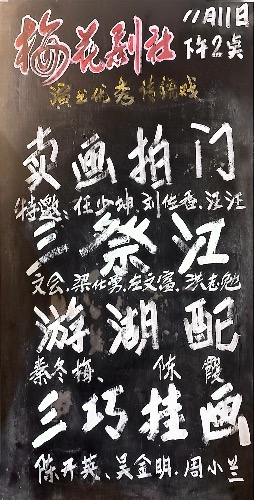 梅花剧社
11月11日
下午2点
演出优秀传统戏
卖画拍门
特邀、任少坤.刘传香.汪汪
三祭江
文会.梁仕勇.左文宽.洪志勉
游湖配
秦冬梅、陈霞
三巧挂画
陈开英、吴金明.周小兰